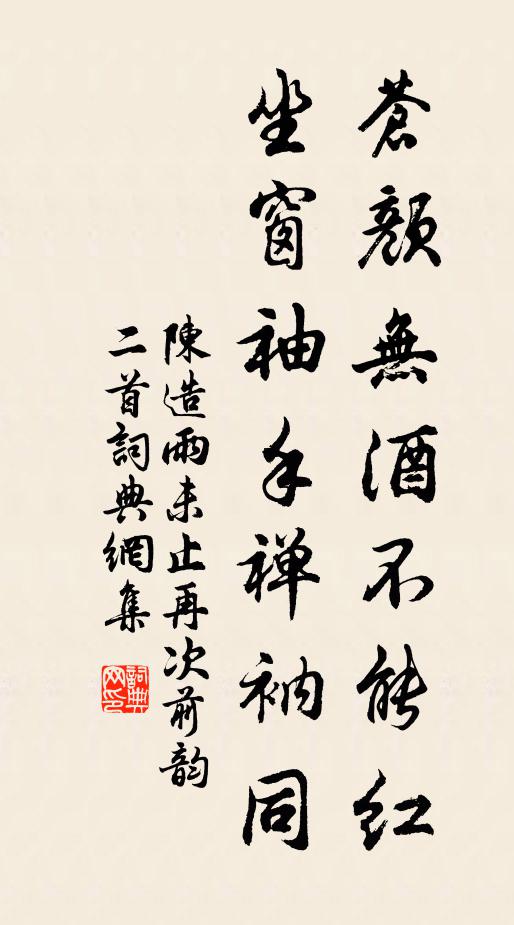 蒼顏無酒不能紅
坐窗袖手禅衲同
陳造雨未止再次前韵
二首詞典網集
詞典网印